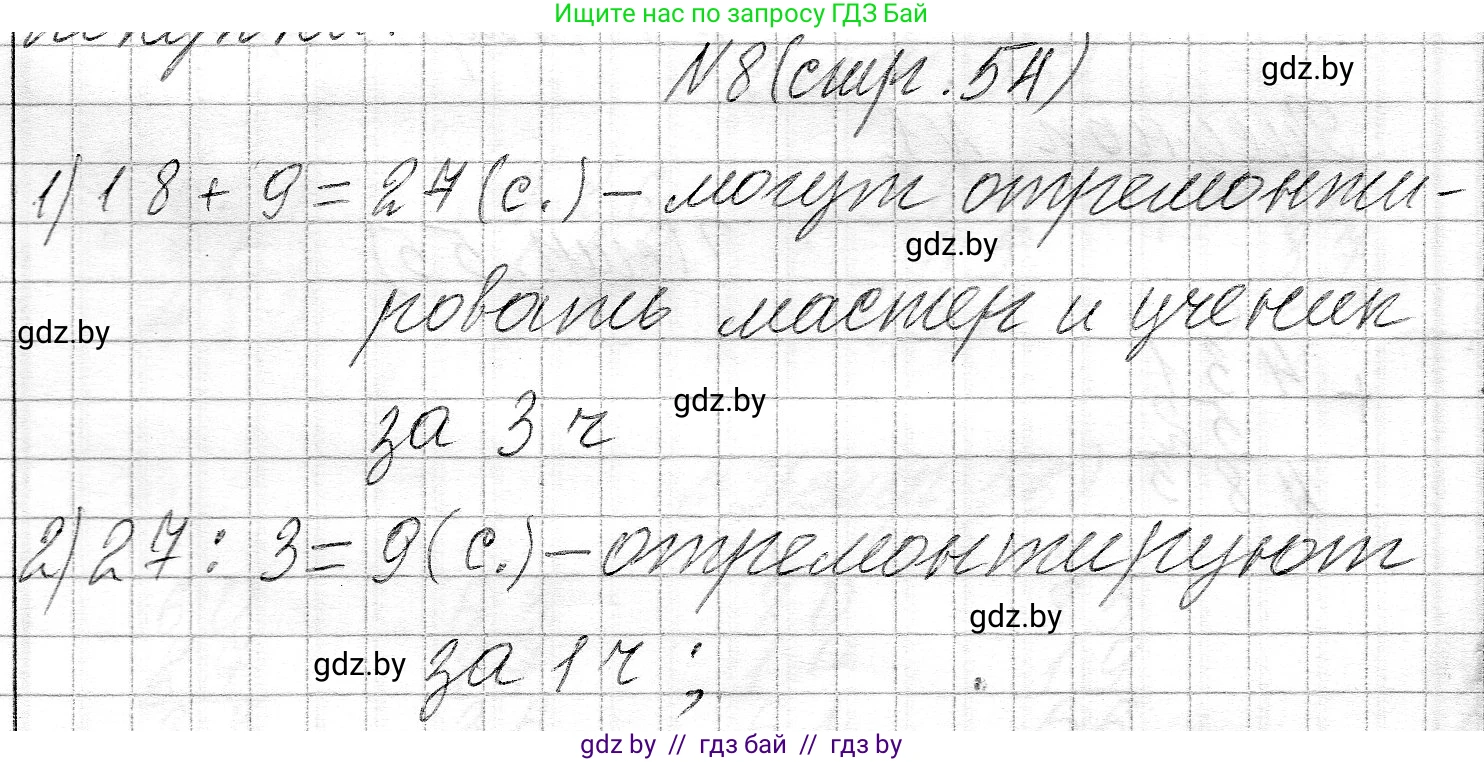 Ищите нас по запросу ГДЗ Бай
N8 (стр. 54)
gdz.by
1) 18 + 9 = 27 (с.) – могут отремонти-
gdz.by
ровать мастер и ученик
gdz.by
за 3 ч
gdz.by
2) 27 : 3 = 9 (с.) – отремонтируют
gdz.by
за 1 ч ;
gdz.by
gdz by // гдз бай // гдз by